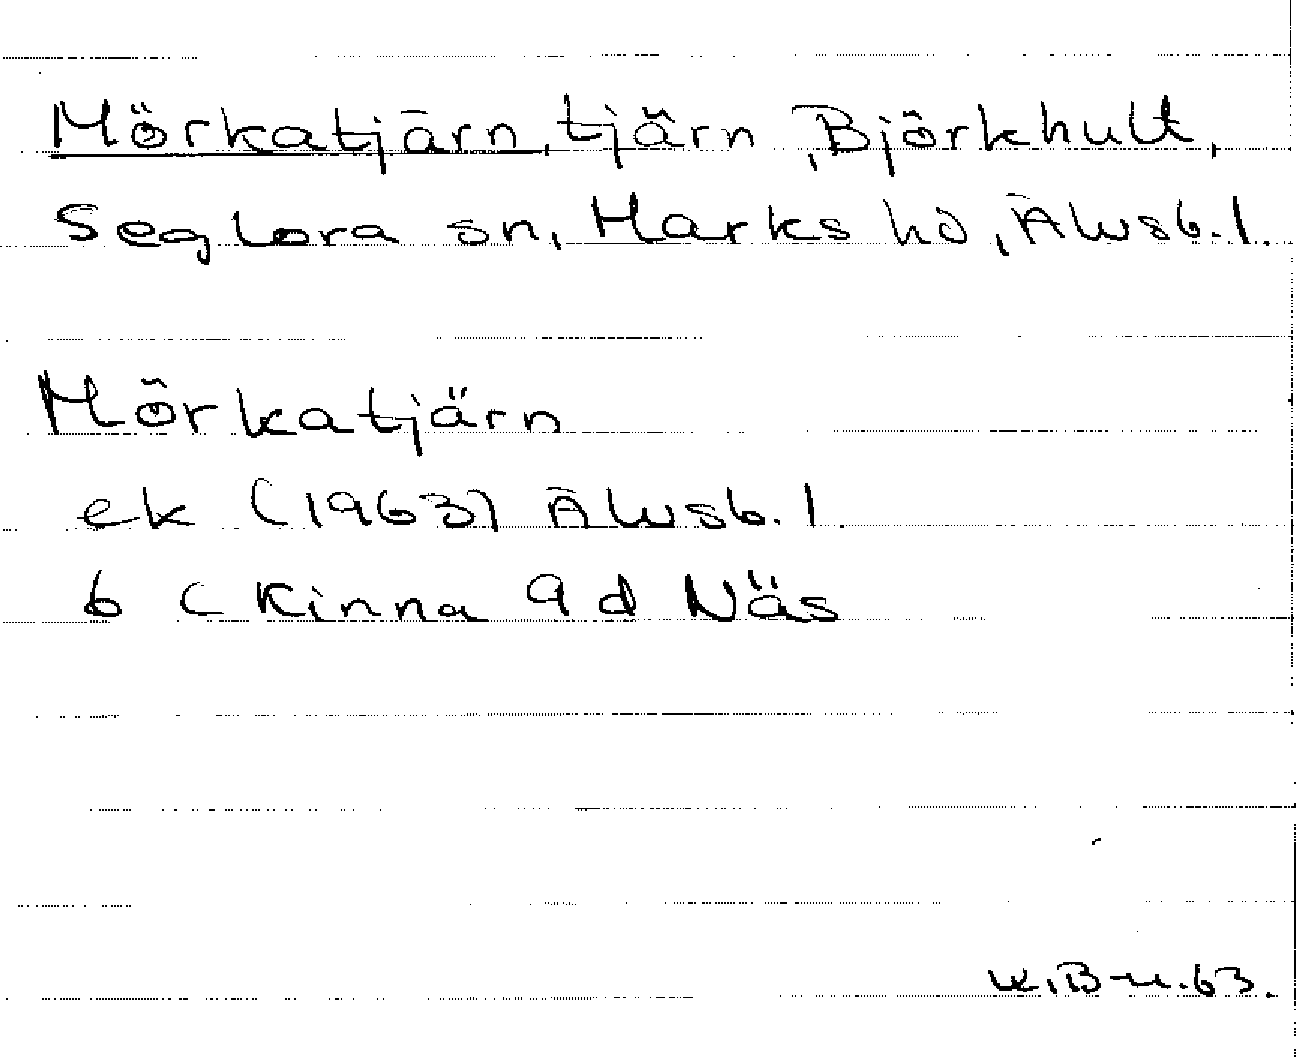 Mörkatjärn, tjärn, Björkhult,
Seglora sn, Marks hd, Älvsb. l.
Mörkatjärn
ek (1963) Älvsb. l.
b ( Kinna 9 d Näs
K.B-n. 63.